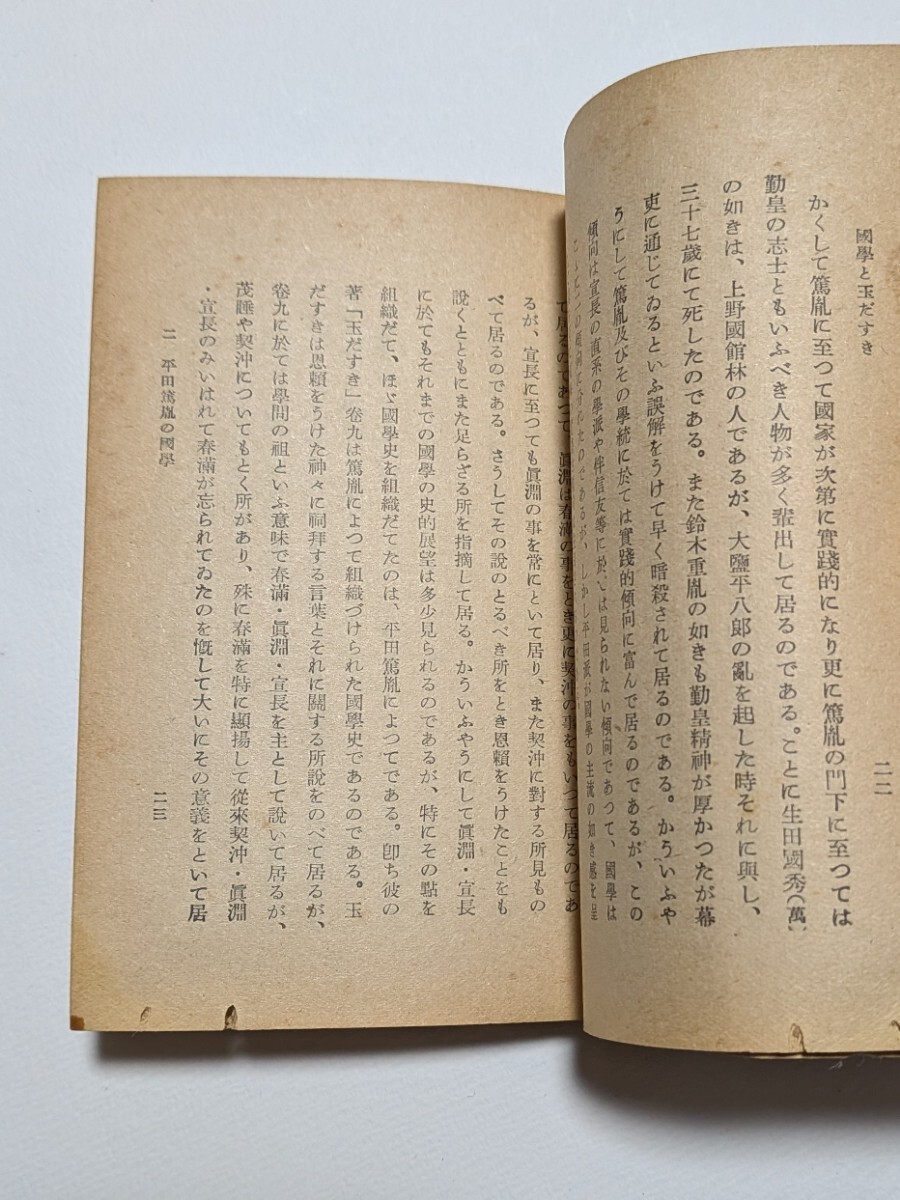 國學と玉だすき
二二
かくして篤胤に至つて國家が次第に實踐的になり更に篤胤の門下に至つては
勤皇の志士ともいふべき人物が多く輩出して居るのである。ことに生田國秀(萬)
の如きは、上野國館林の人であるが、大鹽平八郞の亂を起した時それに與し、
三十七歲にて死したのである。また鈴木重胤の如きも勤皇精神が厚かつたが幕
吏に通じてゐるといふ誤解をうけて早く暗殺されて居るのである。かういふや
うにして篤胤及びその學統に於ては實踐的傾向に富んで居るのであるが、この
傾向は宣長の直系の學派や伴信友等に於いては見られない傾向であつて、國學は
の傾向に分れたのであるが、しかし平田派が國學の主流の如き感を呈
て居るのであつて、眞淵は春滿の事をとき更に契沖の事をもいつて居るのであ
るが、宣長に至つても眞淵の事を常にといて居り、また契沖に對する所見もの
べて居るのである。さうしてその說のとるべき所をとき恩賴をうけたことをも
說くとともにまた足らざる所を指摘して居る。かういふやうにして眞淵・宣長
に於てもそれまでの國學の史的展望は多少見られるのであるが、特にその點を
組織だて、ほゞ國學史を組織だてたのは、平田篤胤によつてである。卽ち彼の
著「玉だすき」卷九は篤胤によつて組織づけられた國學史であるのである。玉
だすきは恩賴をうけた神々に祠拜する言葉とそれに關する所說をのべて居るが、
卷九に於ては學問の祖といふ意味で春滿・眞淵・宣長を主として說いて居るが、
茂睡や契沖についてもとく所があり、殊に春滿を特に顯揚して從來契沖・眞淵
・宣長のみいはれて春滿が忘られてゐたのを慨して大いにその意義をといて居
二 平田篤胤の國學
二三